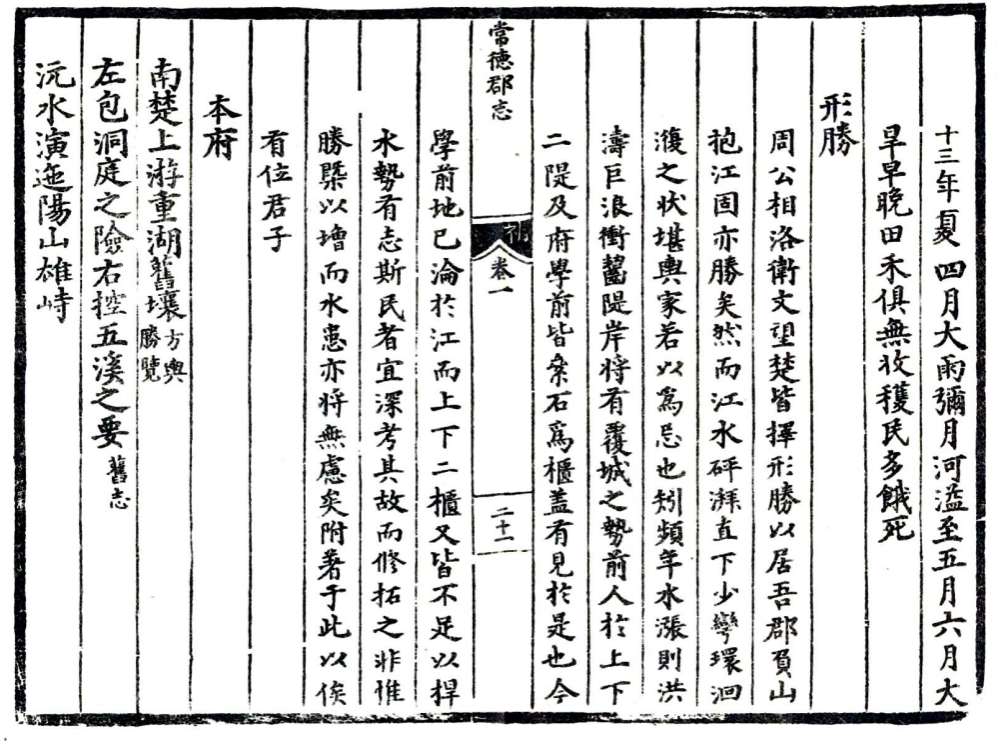 十三年夏四月大雨彌月河溢至五月六月大
旱早晚田禾俱無收穫民多餓死
形勝
周公相洛衛文望楚皆擇形勝以居吾郡負山
抱江固亦勝矣然而江水砰湃直下少彎環洄
澓之狀堪輿家若以爲忌也矧頻年水漲則洪
濤巨浪衝齧隄岸将有覆城之勢前人於上下
二隄及府學前皆絫石爲櫃盖有見於是也今
常徳郡志
卷一
二十一
學前地已淪於江而上下二櫃又皆不足以捍
水勢有志斯民者宜深考其故而修拓之非惟
勝槩以增而水患亦将無慮矣附著于此以俟
有位君子
本府
南楚上游重湖舊壤方輿勝覽
左包洞庭之險右控五溪之要舊志
沅水演迤陽山雄峙